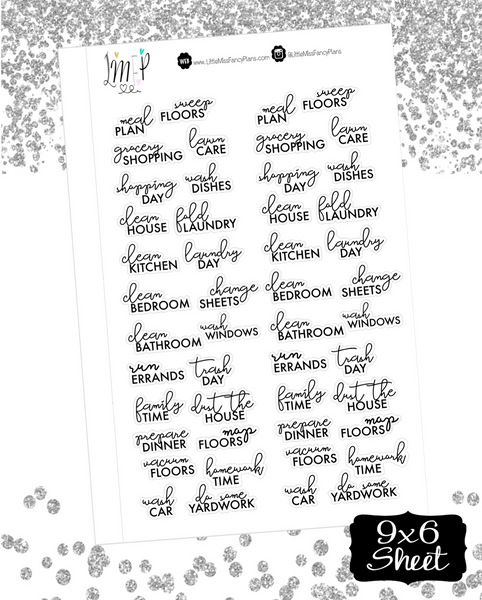 LMFP
WEB www.LittleMissFancyPlans.com @LittleMissFancyPlans
meal PLAN sweep FLOORS meal PLAN sweep FLOORS
grocery SHOPPING lawn CARE grocery SHOPPING lawn CARE
shopping DAY wash DISHES shopping DAY wash DISHES
clean HOUSE fold LAUNDRY clean HOUSE fold LAUNDRY
clean KITCHEN laundry DAY clean KITCHEN laundry DAY
clean BEDROOM change SHEETS clean BEDROOM change SHEETS
clean BATHROOM wash WINDOWS clean BATHROOM wash WINDOWS
run ERRANDS trash DAY run ERRANDS trash DAY
family TIME dust the HOUSE family TIME dust the HOUSE
prepare DINNER mop FLOORS prepare DINNER mop FLOORS
vacuum FLOORS homework TIME vacuum FLOORS homework TIME
wash CAR do some YARDWORK wash CAR do some YARDWORK
9x6
Sheet